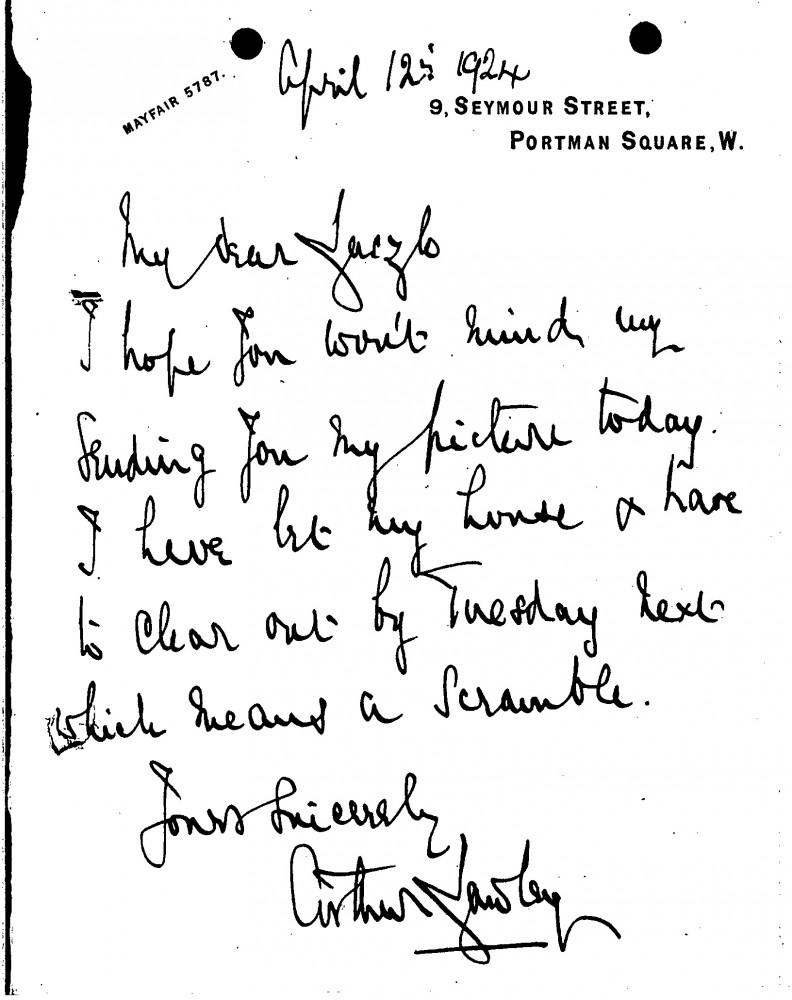 MAYFAIR 5787.
April 12th 1924
9, SEYMOUR STREET,
PORTMAN SQUARE, W.
My dear Laczlo
I hope you won't mind my
sending you my picture today.
I have let my house & have
to clear out by Tuesday next
which means a scramble.
Yours sincerely
Arthur Lawley